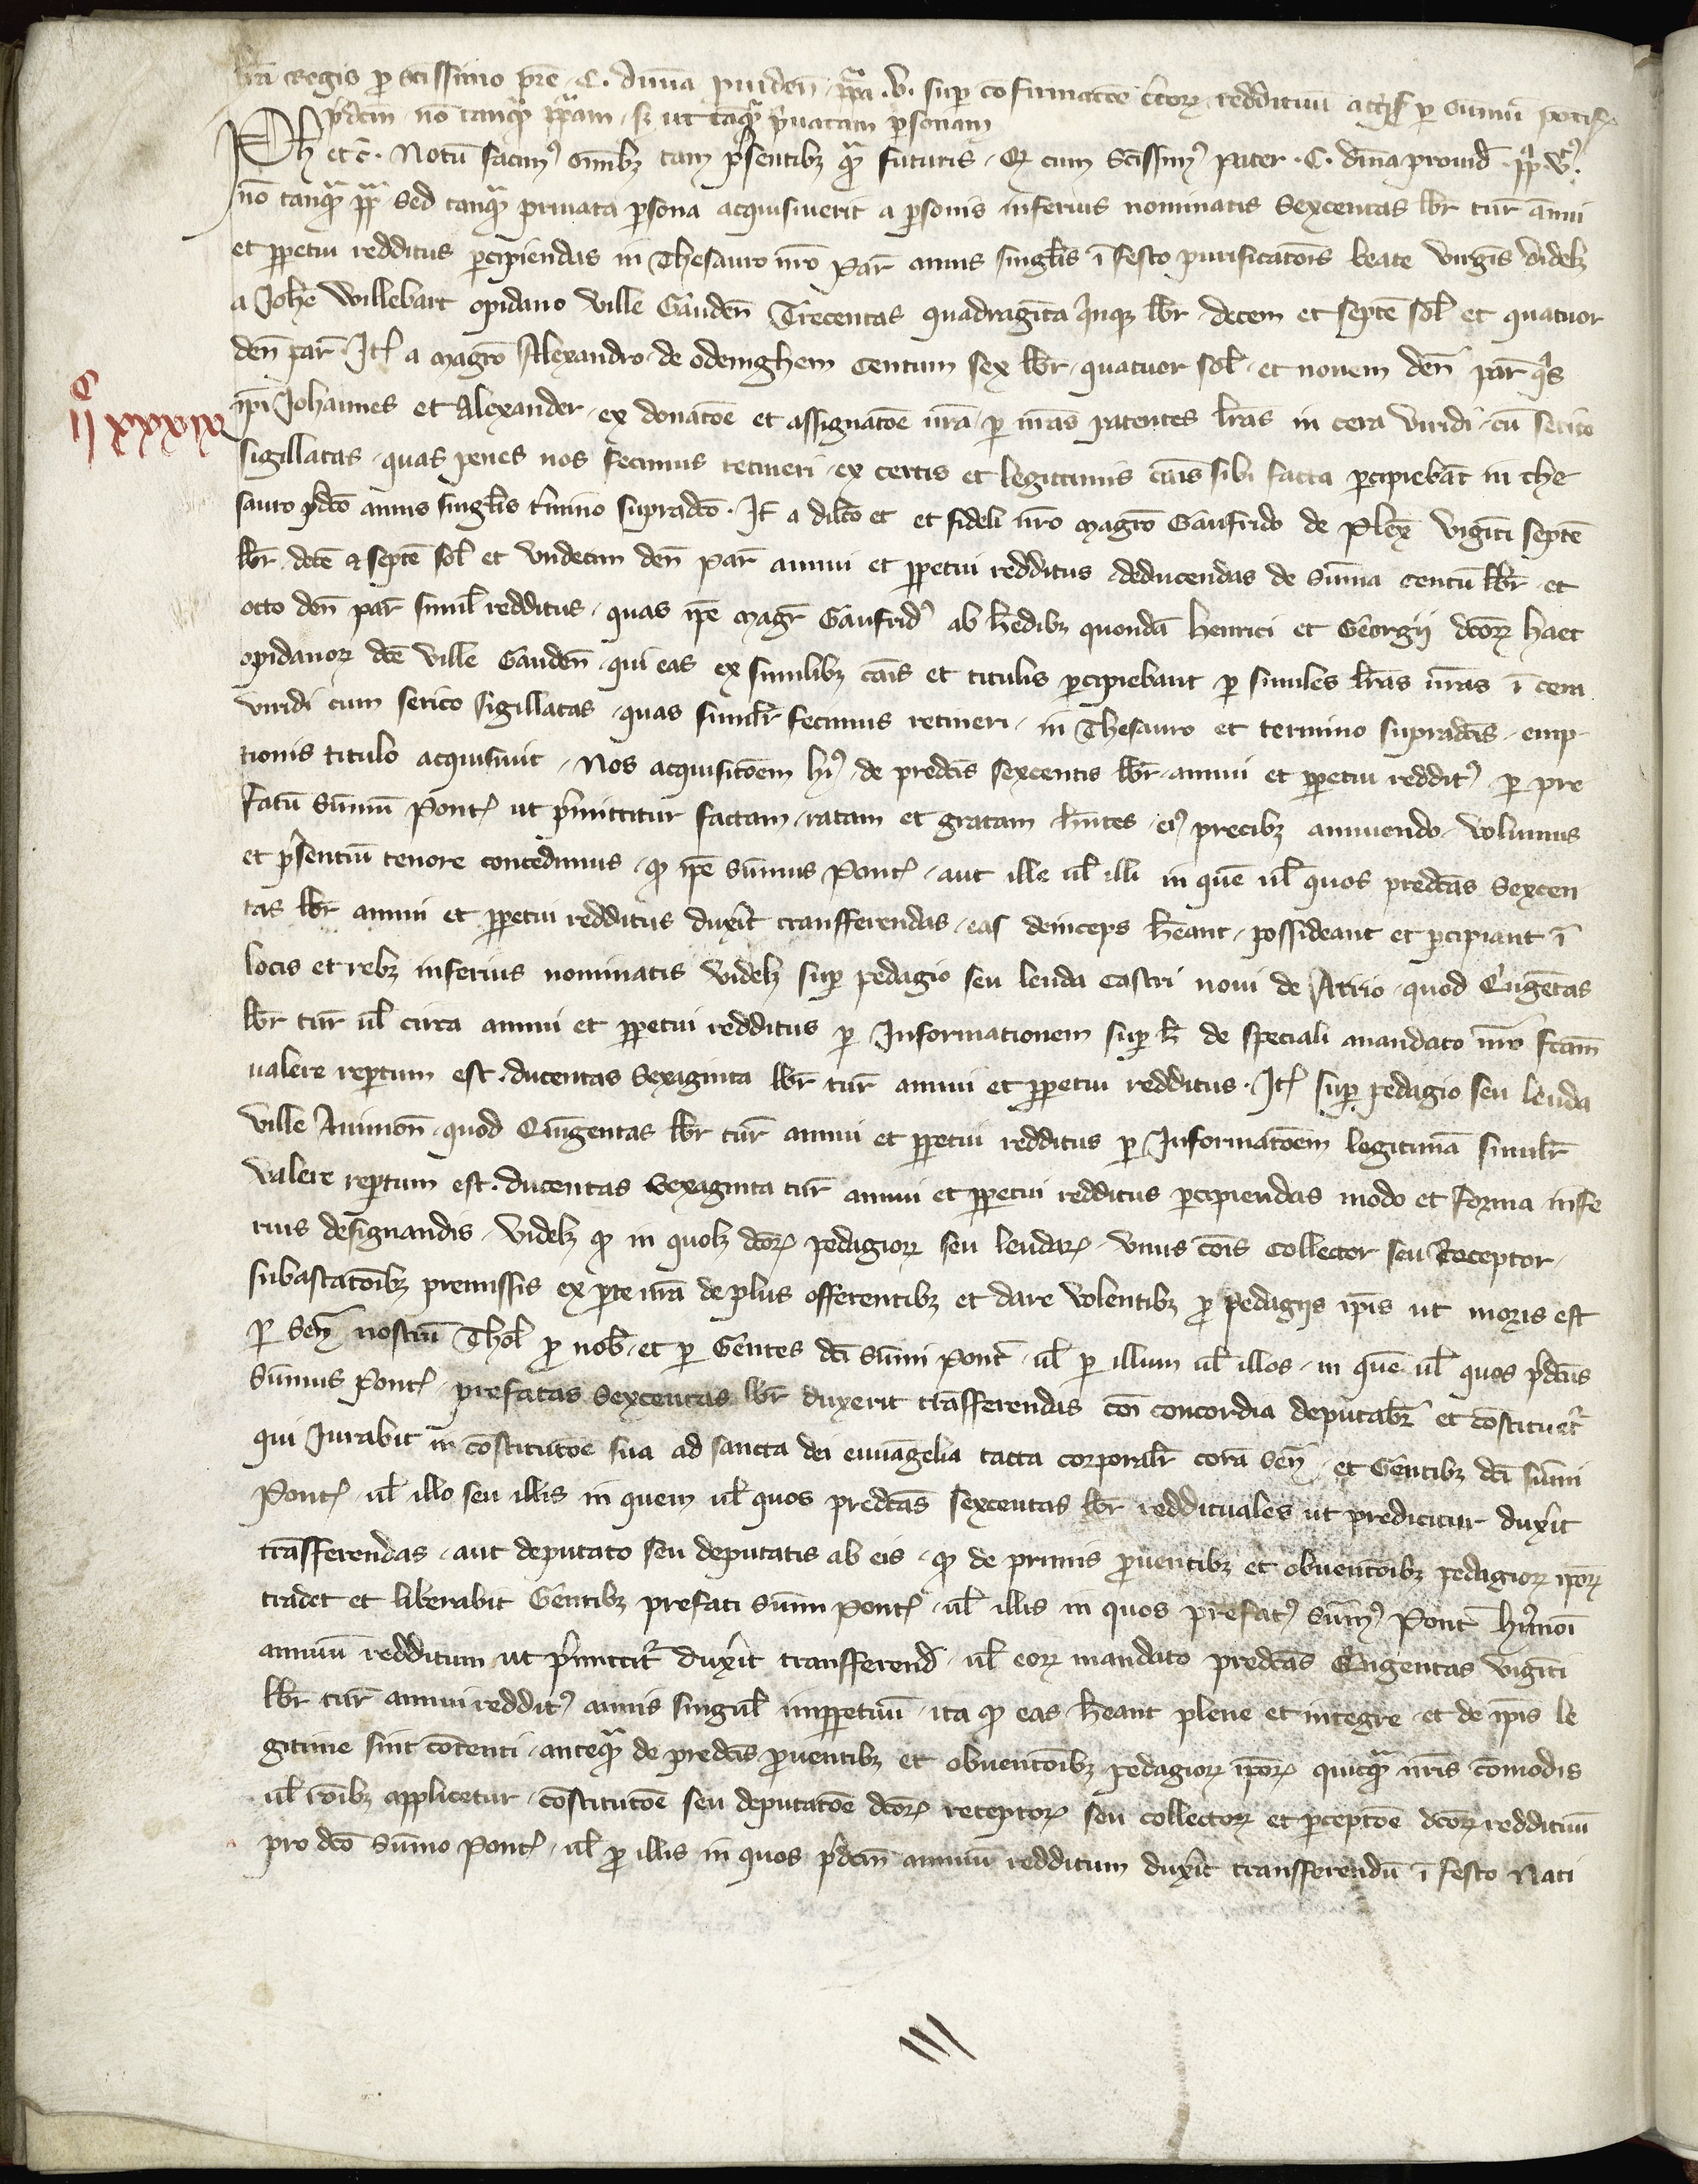 Regis pro scissimo pre C. diuina puiden ppa .v. sup confirmacoe ctorꝝ reddituu acqs p summu potif
pdcm no tanqᵃ ppam sꝫ ut tanqᵃ priuatam psonam
Ph etc̄. Notū facimꝰ omībꝫ tam pn̄sentibꝫ qᵃ̄ futuris qꝫ cum Scissimꝰ pater .C. diuīa prouid̄ ppᵃ vꝰ.
nō tanqᵃ̄ ppᵃ sed tanqᵃ̄ priuata ꝑsona acquisiuerit a ꝑsonis inferius nominatis Sexcentas lbr̄ tur̄ annui
et ꝑpetui redditus ꝑcipiendas in Thesauro nr̄o Par̄ annis singlis ī festo purificatōis beate uirgīs videlꝫ
a Johe Willebart opidano ville Ganden̄ Trecentas quadragīta quinqꝫ lbr̄ decem et septē sol̄ et quatuor
den̄ par̄ Itꝫ a magrō Alexandro de odenghem Centum sex lbr̄ quatuor sol̄ et nouem den̄ par̄ qᵃs
c
ii xxxxix
ip̄i Johannes et Alexander ex donatōe et assignatōe nr̄a ꝑ nr̄as patentes lr̄as in cera viridi cū serico
sigillatas quas penes nos fecimus retineri ex certis et legittimis cāis sibi facta ꝑcipiebāt in the
sauro p̄dco annis singlis tꝰmino supradcō. Itꝫ a dilcō et et fideli nr̄o magrō Gaufrido de Plex̄ viginti septē
lbr̄ decē & septē sol̄ et undecim den̄ par̄ annui et ꝑpetui redditus deducendas de summa centū lbr̄ et
octo den̄ par̄ simil redditus quas ip̄e magr̄ Gaufridꝰ ab h̄edibꝫ quondā Henrici et Georgij dcōrꝝ haet
opidanorꝝ dcē ville Ganden̄ qui eas ex similibꝫ cāis et titulis ꝑcipiebant ꝑ similes lr̄as nr̄as ī cera
viridi cum serico sigillatas quas similr̄ fecimus retineri in Thesauro et termino supradcīs emp
tionis titulo acquisiuit Nos acquisitōem hꝰ de predcīs sexcentis lbr̄ annui et ꝑpetui redditꝰ ꝑ pre
fatū Sūmū Pontꝫ ut p̄mittitur factam ratam et gratam hn̄tes eiꝰ precibꝫ annuendo volumus
et p̄sentiū tenore concedimus qꝫ ip̄e Sūmus Pontꝫ aut ille ul̄ illi in quē ul̄ quos predcās Sexcen
tas lbr̄ annui et ꝑpetui redditus duxit transferendas eas deinceps heant possideant et ꝑcipiant ī
locis et rebꝫ inferius nominatis videlꝫ sup pedagio seu leuda Castri noui de Arrio quod Quigētas
lbr̄ tur̄ ul̄ circa annui et ꝑpetui redditus ꝑ Informationem sup h̄ de speciali mandato nr̄o fcām
ualere repertum est ducentas Sexaginta lbr̄ tur̄ annui et ꝑpetui redditus. Itꝫ sup pedagio seu leuda
ville Auinion̄ quod Quigentas lbr̄ tur̄ annui et ꝑpetui redditus ꝑ Informatōem legitimā similr̄
valere repertum est ducentas Sexaginta tur̄ annui et ꝑpetui redditus ꝑcipiendas modo et forma infe
rius designandis videlꝫ qꝫ in quolꝫ dcōrꝝ pedagiorꝝ seu leudarꝝ vnus cōis Collector seu Receptor
subastatōibꝫ premissis ex ꝑte nr̄a de plus offerentibꝫ et dare volentibꝫ ꝓ pedagijs ip̄is ut moris est
ꝑ Sen̄ nostrū Thol̄ ꝓ nob̄ et ꝑ Gentes dcī sūmi pont̄ ul̄ ꝑ illum ul̄ illos in quē ul̄ quos p̄dcūs
Sūmus Pontꝫ prefatas Sexcentas lbr̄ duxerit trāsferendas cōi concordia deputabr̄ et cōstituetr̄
qui Iurabit in cōstitutōe sua ad sancta dei euuāgelia tacta corporalr̄ corā Sen̄ et Gentibꝫ dcī sūmi
Pontꝫ ul̄ illo seu illis in quem ul̄ quos predcās sexcentas lbr̄ reddituales ut predicitur duxīt
trāsferendas aut deputato seu deputatis ab eis qꝫ de primis ꝓuentibꝫ et obuentōibꝫ pedagiorꝝ ipōrꝝ
tradet et liberabit Gentibꝫ prefati Sūmi Pontꝫ ul̄ illis in quos prefatꝰ Sūmꝰ Pont̄ hꝰmōi
annuū redditum ut p̄mittitr̄ duxīt transferend̄ ul̄ eorꝝ mandato predcās Quigentas viginti
lbr̄ tur̄ annui redditꝰ annis singul̄ imꝑpetuū ita qꝫ eas heant plene et integre et de ip̄is le
gitime sint cōtenti anteqᵃ̄ de predcīs ꝓuentibꝫ et obuentōibꝫ pedagiorꝝ ipōrꝝ quicqᵃ̄ nr̄is cōmodis
ul̄ rōibꝫ applicetur cōstitutōe seu deputatōe dcōrꝝ receptorꝝ seu collectorꝝ et ꝑceptōe dcōrꝝ reddituū
pro dcō Sūmo Pontꝫ ul̄ ꝓ illis in quos p̄dcm̄ annuū redditum duxīt transferendū ī festo Nati